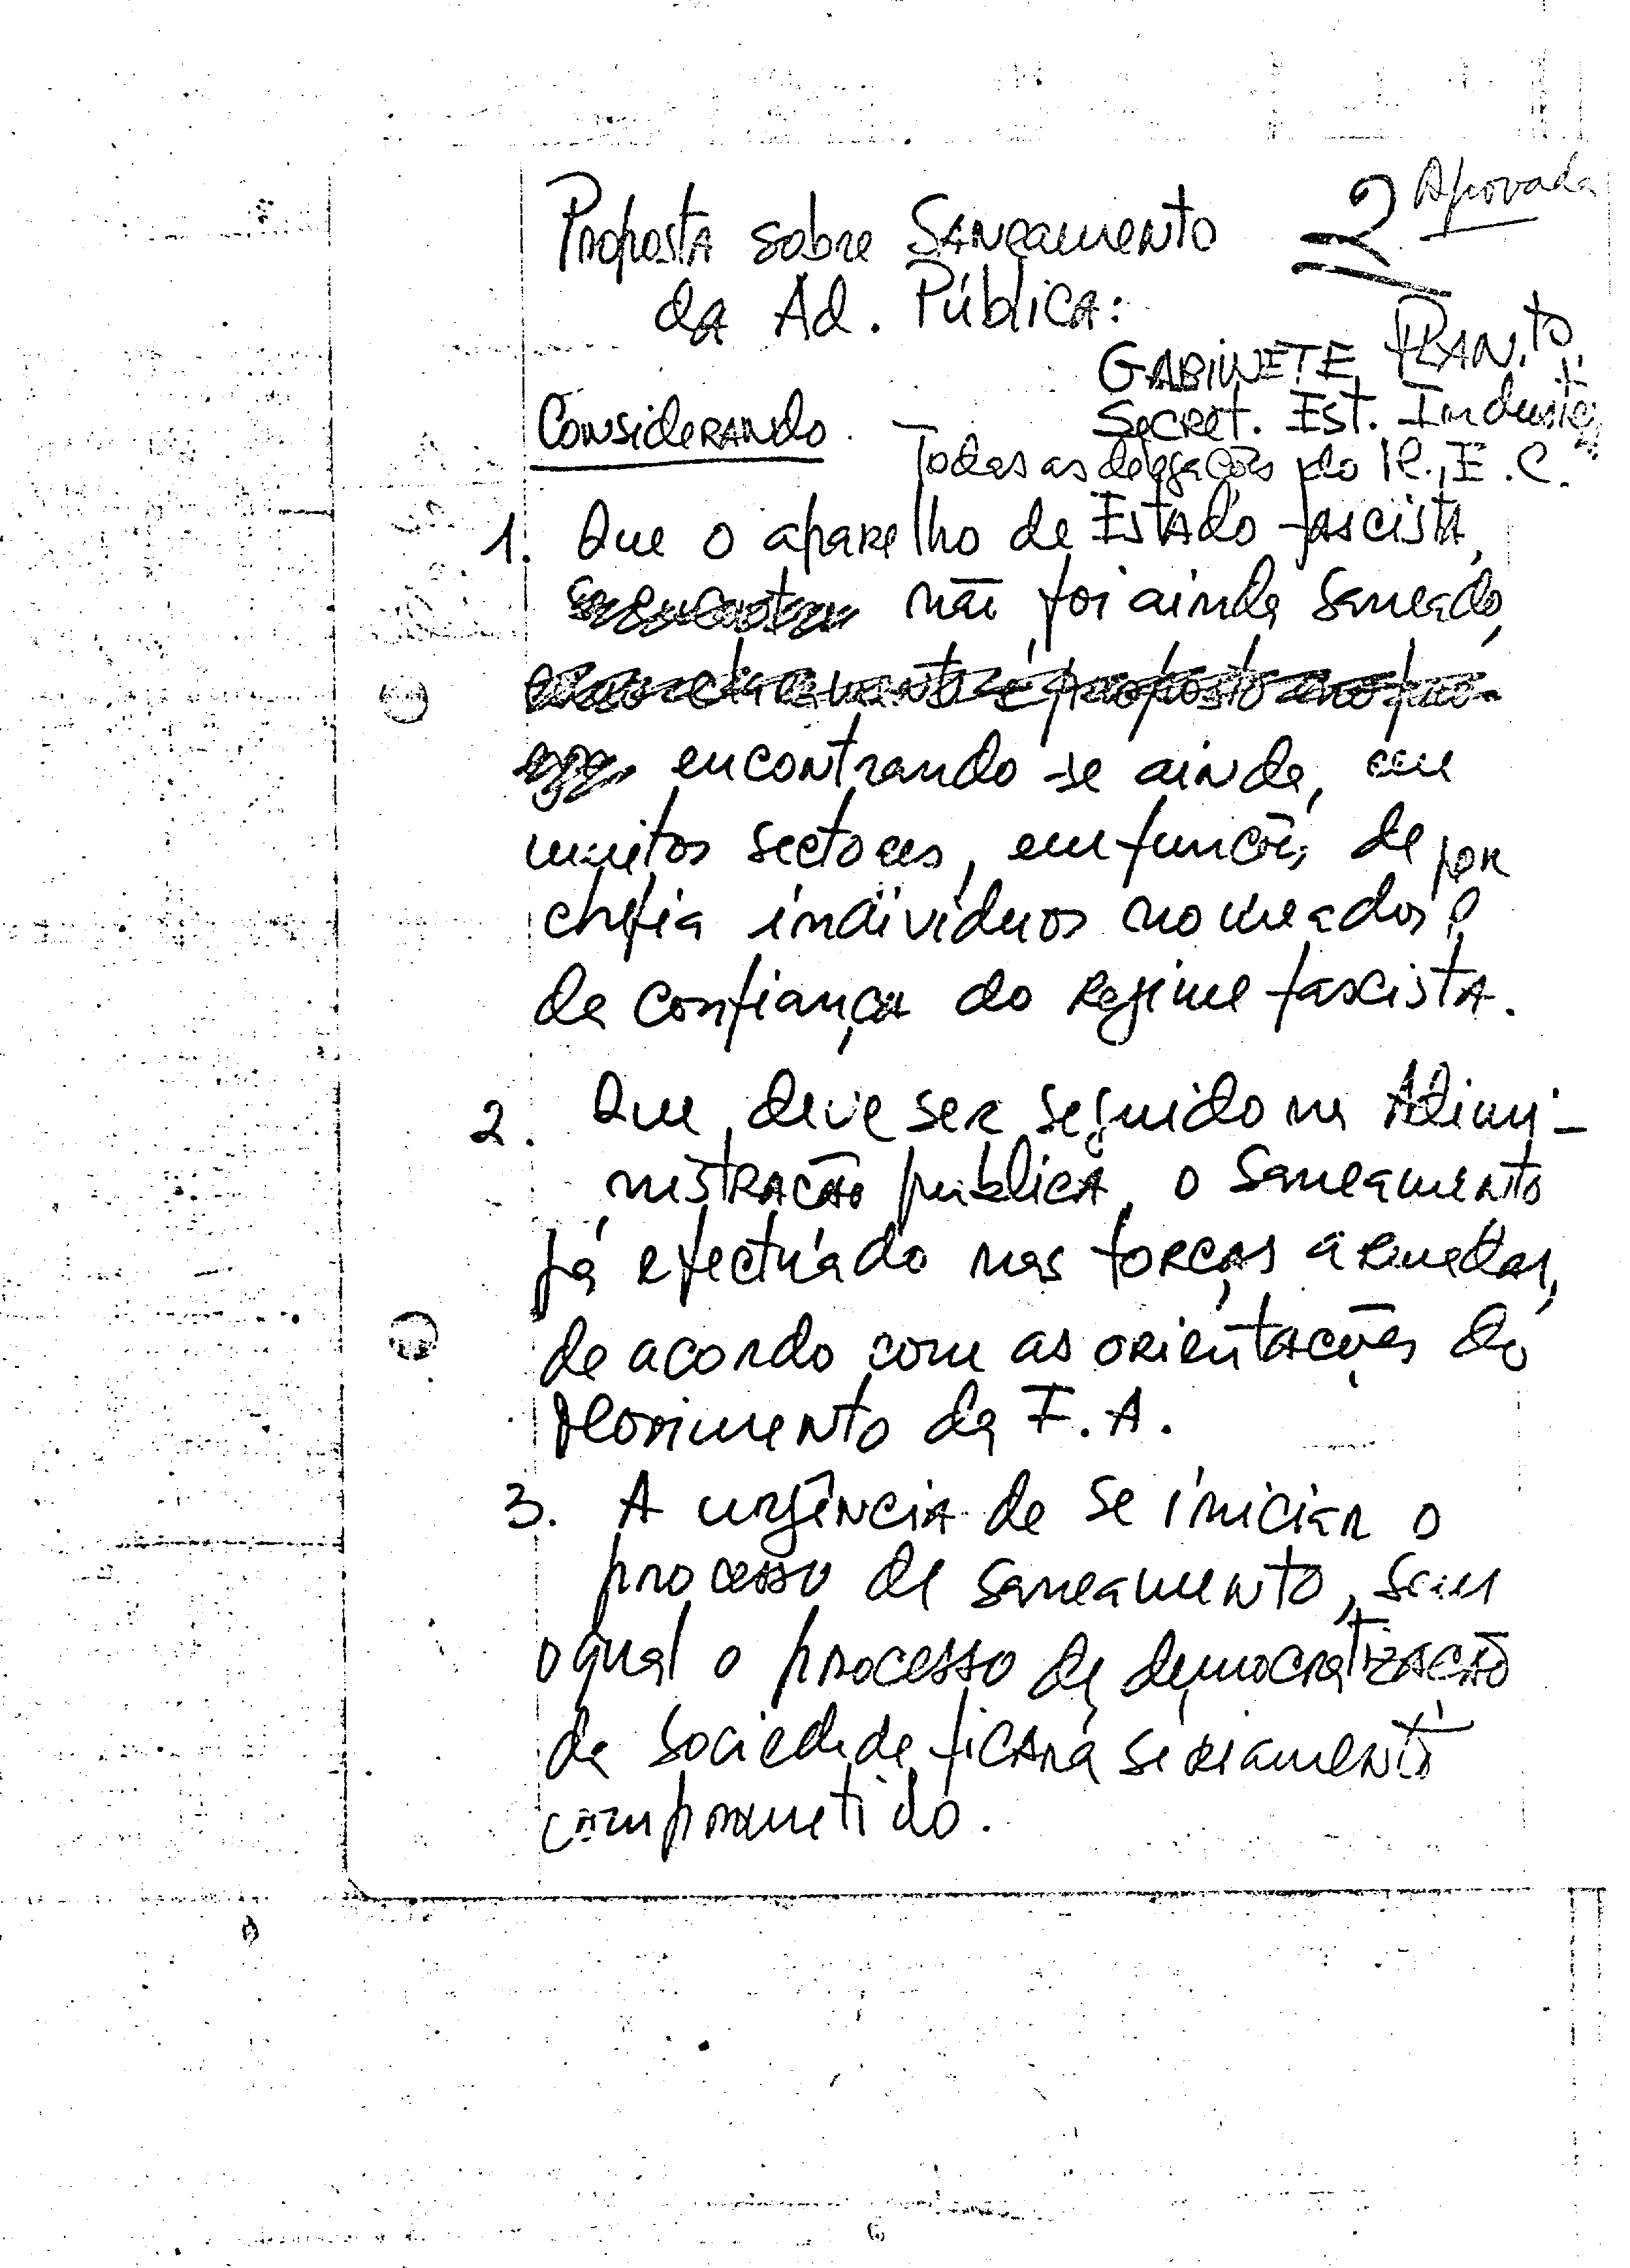 Proposta sobre Saneamento
2 Aprovada
da Ad. Pública:
GABINETE PLAN.to
Secret. Est. Industria
Considerando
Todas as delegações do M.E.C.
1. Que o aparelho de Estado fascista,
não foi ainda saneado,
encontrando-se ainda, em
muitos sectores, em funções de
chefia indivíduos nomeados por
da confiança do regime fascista.
2. Que deve ser seguido na Admi-
nistração pública, o saneamento
já efectuado nas forças armadas,
de acordo com as orientações do
Movimento da F.A.
3. A urgência de se iniciar o
processo de saneamento, sem
o qual o processo da democratização
da sociedade ficará seriamente
comprometido.